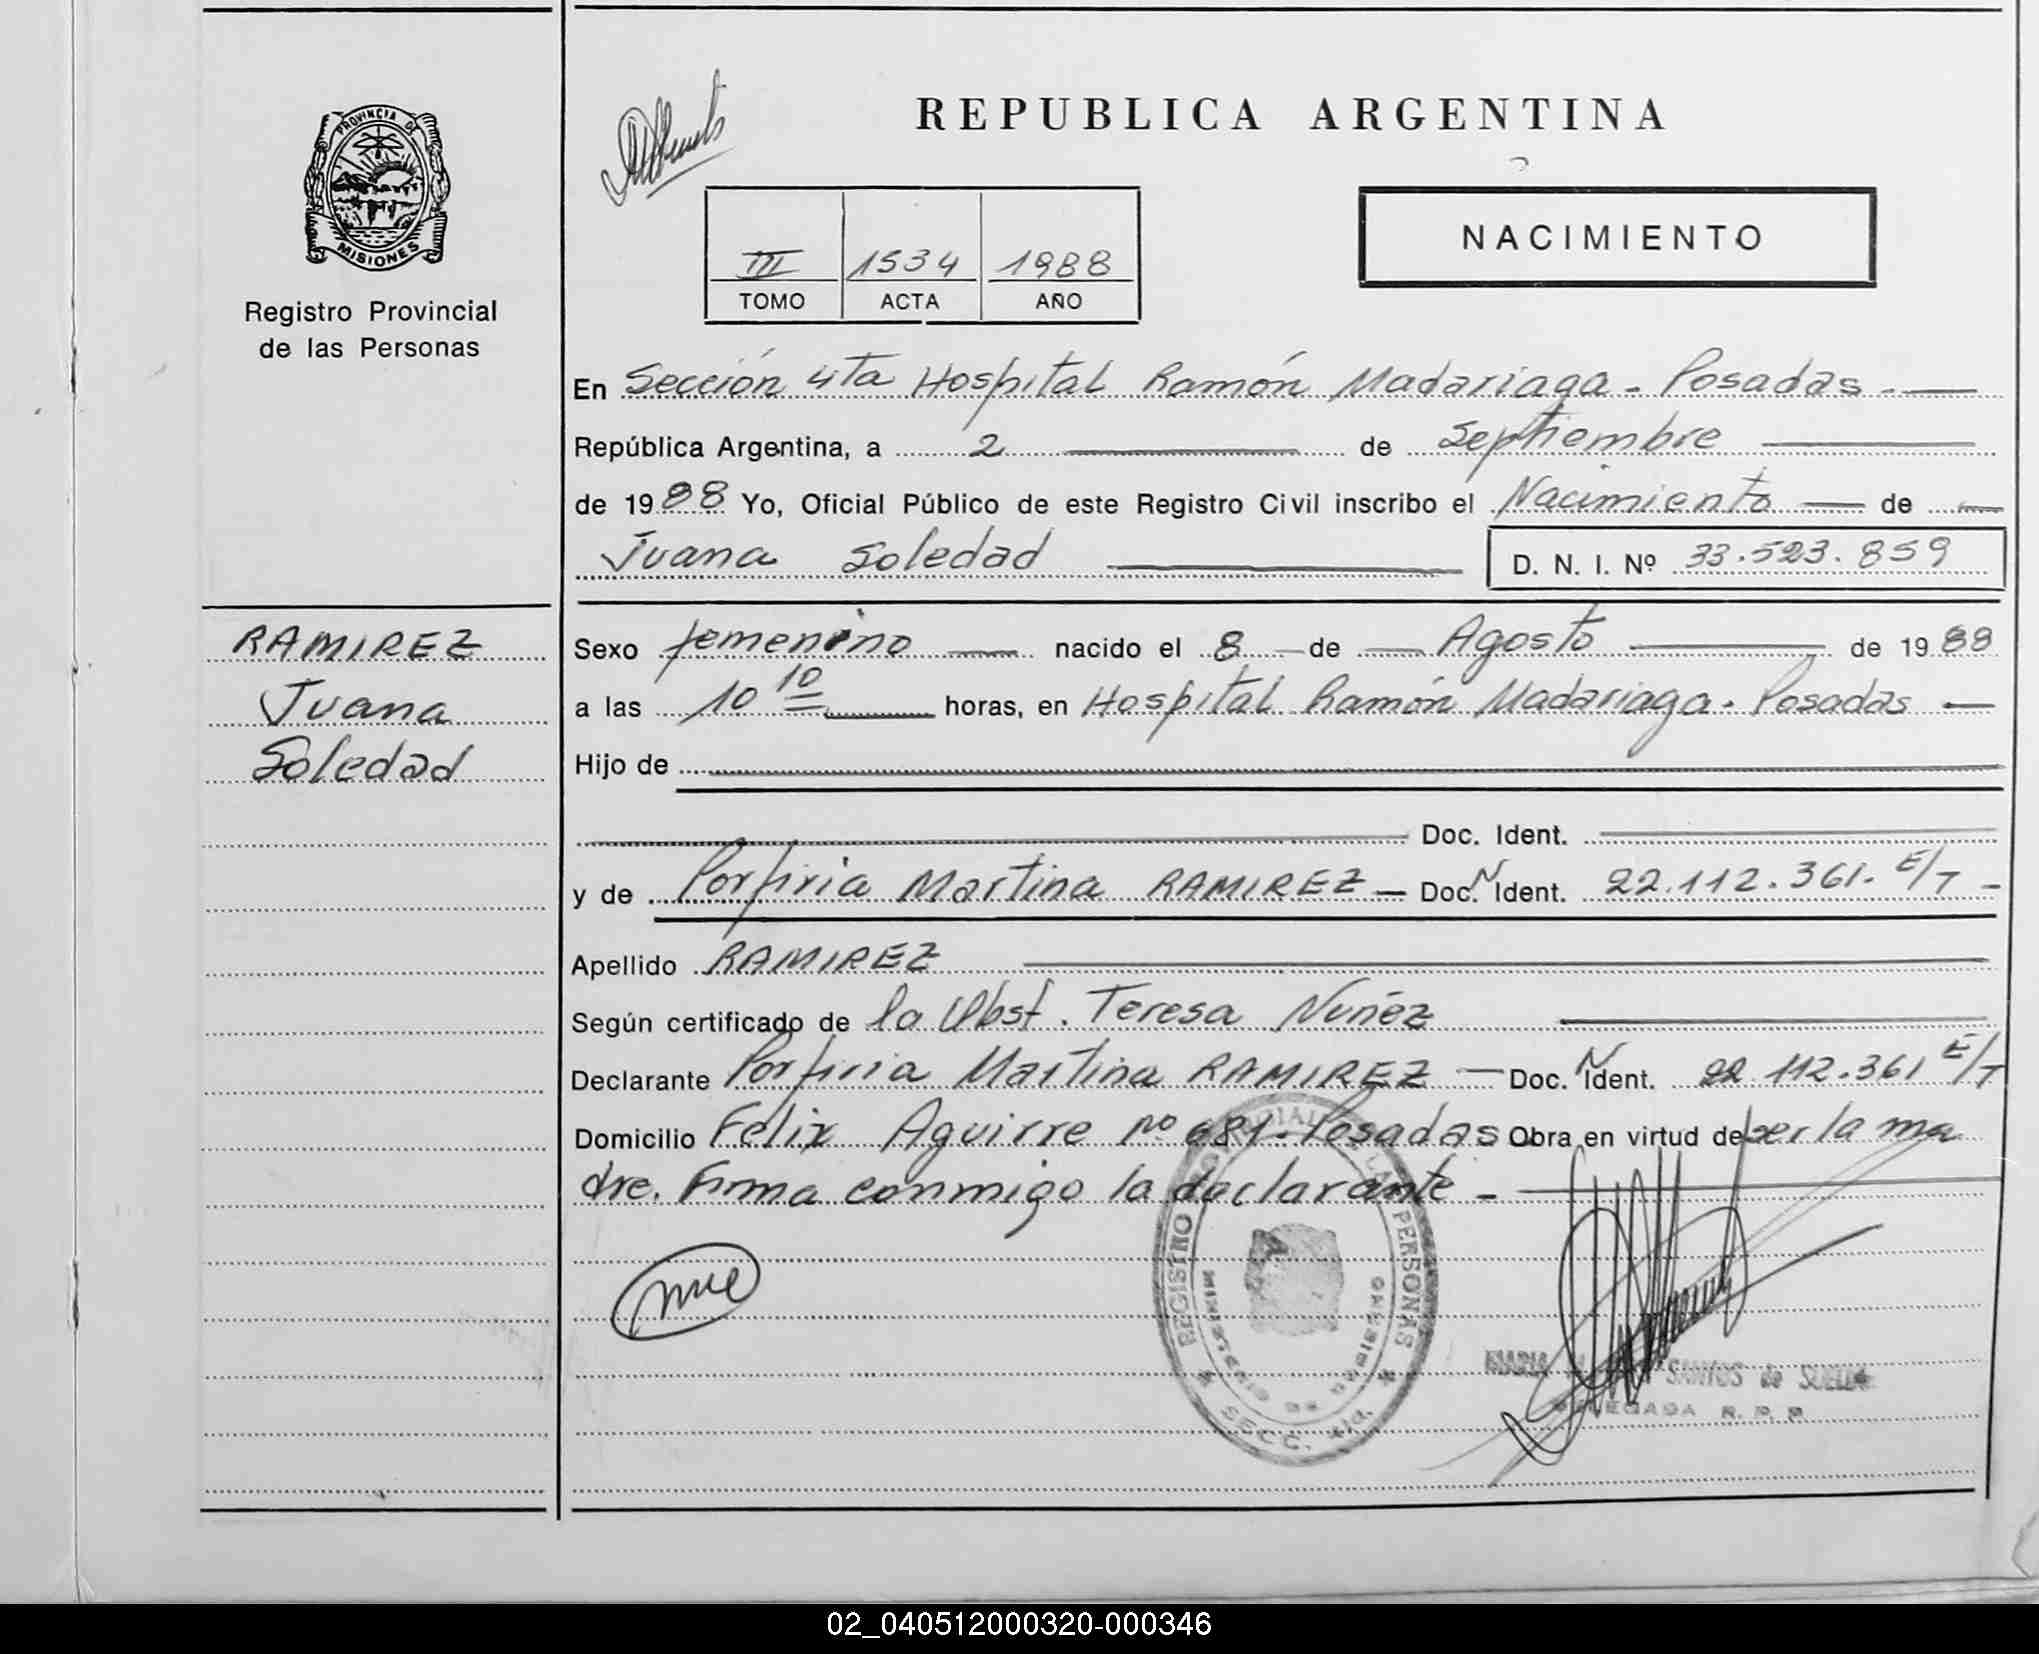 PROVINCIA DE
MISIONES
Registro Provincial
de las Personas
RAMIREZ
Juana
Soledad
REPUBLICA ARGENTINA
NACIMIENTO
III 1534 1988
TOMO ACTA AÑO
En Sección 4ta Hospital Ramón Madariaga - Posadas -
República Argentina, a 2 de Septiembre
de 1988 Yo, Oficial Público de este Registro Civil inscribo el Nacimiento de
Juana Soledad D. N. I. Nº 33.523.859
Sexo femenino nacido el 8 de Agosto de 1988
a las 10 10 horas, en Hospital Ramón Madariaga - Posadas
Hijo de
Doc. Ident.
y de Porfiria Martina RAMIREZ - Doc. N Ident. 22.112.361. E/T -
Apellido RAMIREZ
Según certificado de la Obst. Teresa Nuñéz
Declarante Porfiria Martina RAMIREZ - Doc. N Ident. 22.112.361 E/T
Domicilio Félix Aguirre Nº 681 - Posadas Obra en virtud de ser la ma
dre. Firma conmigo la declarante -
REGISTRO PROVINCIAL DE LAS PERSONAS
MINISTERIO DE GOBIERNO
SECC. 4ta.
MARIA SANTOS de
DELEGADA R. P. P.
02_040512000320-000346